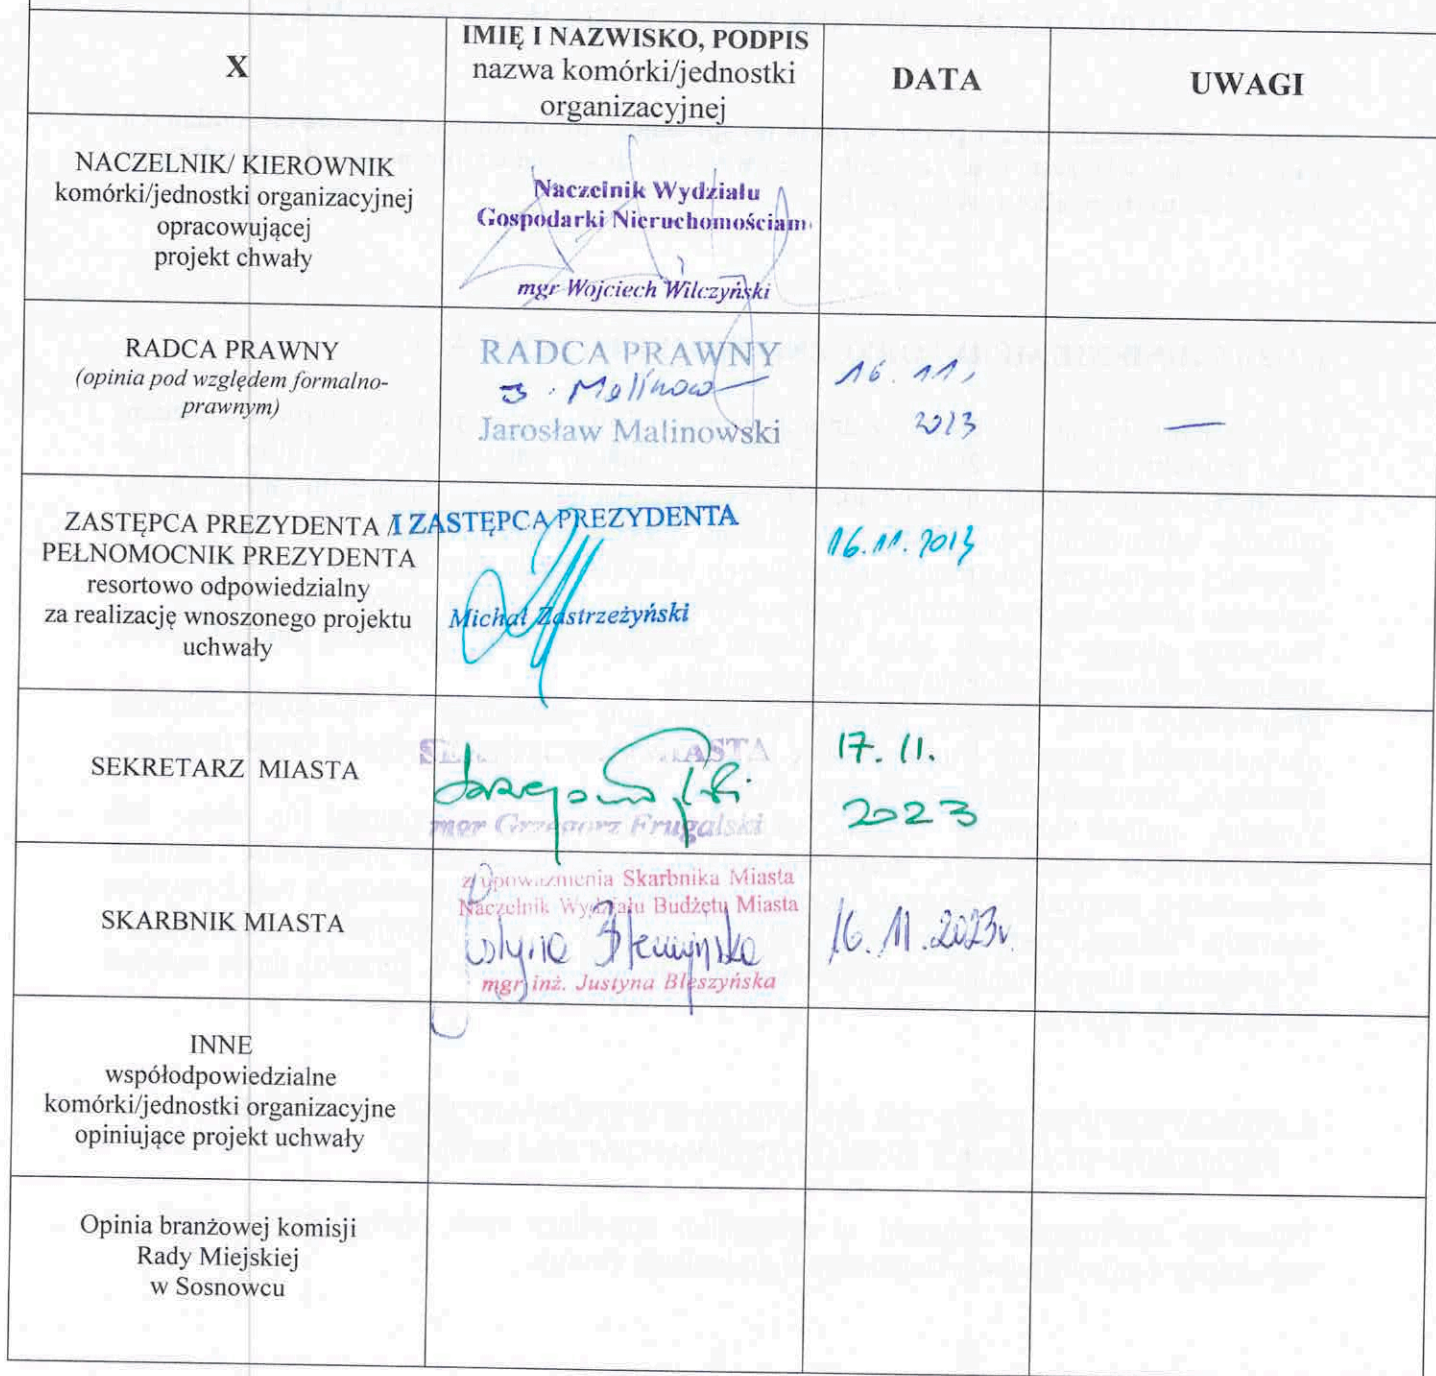 X
IMIĘ I NAZWISKO, PODPIS
nazwa komórki/jednostki
organizacyjnej
DATA
UWAGI
NACZELNIK/ KIEROWNIK
komórki/jednostki organizacyjnej
opracowującej
projekt chwały
Naczelnik Wydziału
Gospodarki Nieruchomościam
mgr Wojciech Wilczyński
RADCA PRAWNY
(opinia pod względem formalno-
prawnym)
RADCA PRAWNY
J. Malinow
Jarosław Malinowski
16. 11,
2023
—
ZASTĘPCA PREZYDENTA /
PEŁNOMOCNIK PREZYDENTA
resortowo odpowiedzialny
za realizację wnoszonego projektu
uchwały
I ZASTĘPCA PREZYDENTA
Michał Zastrzeżyński
16.11.2023
SEKRETARZ MIASTA
MIASTA
mgr Grzegorz Frugalski
17. 11.
2023
SKARBNIK MIASTA
z upoważnienia Skarbnika Miasta
Naczelnik Wydziału Budżetu Miasta
Justyna Błeszyńska
mgr inż. Justyna Błeszyńska
16.11.2023r.
INNE
współodpowiedzialne
komórki/jednostki organizacyjne
opiniujące projekt uchwały
Opinia branżowej komisji
Rady Miejskiej
w Sosnowcu